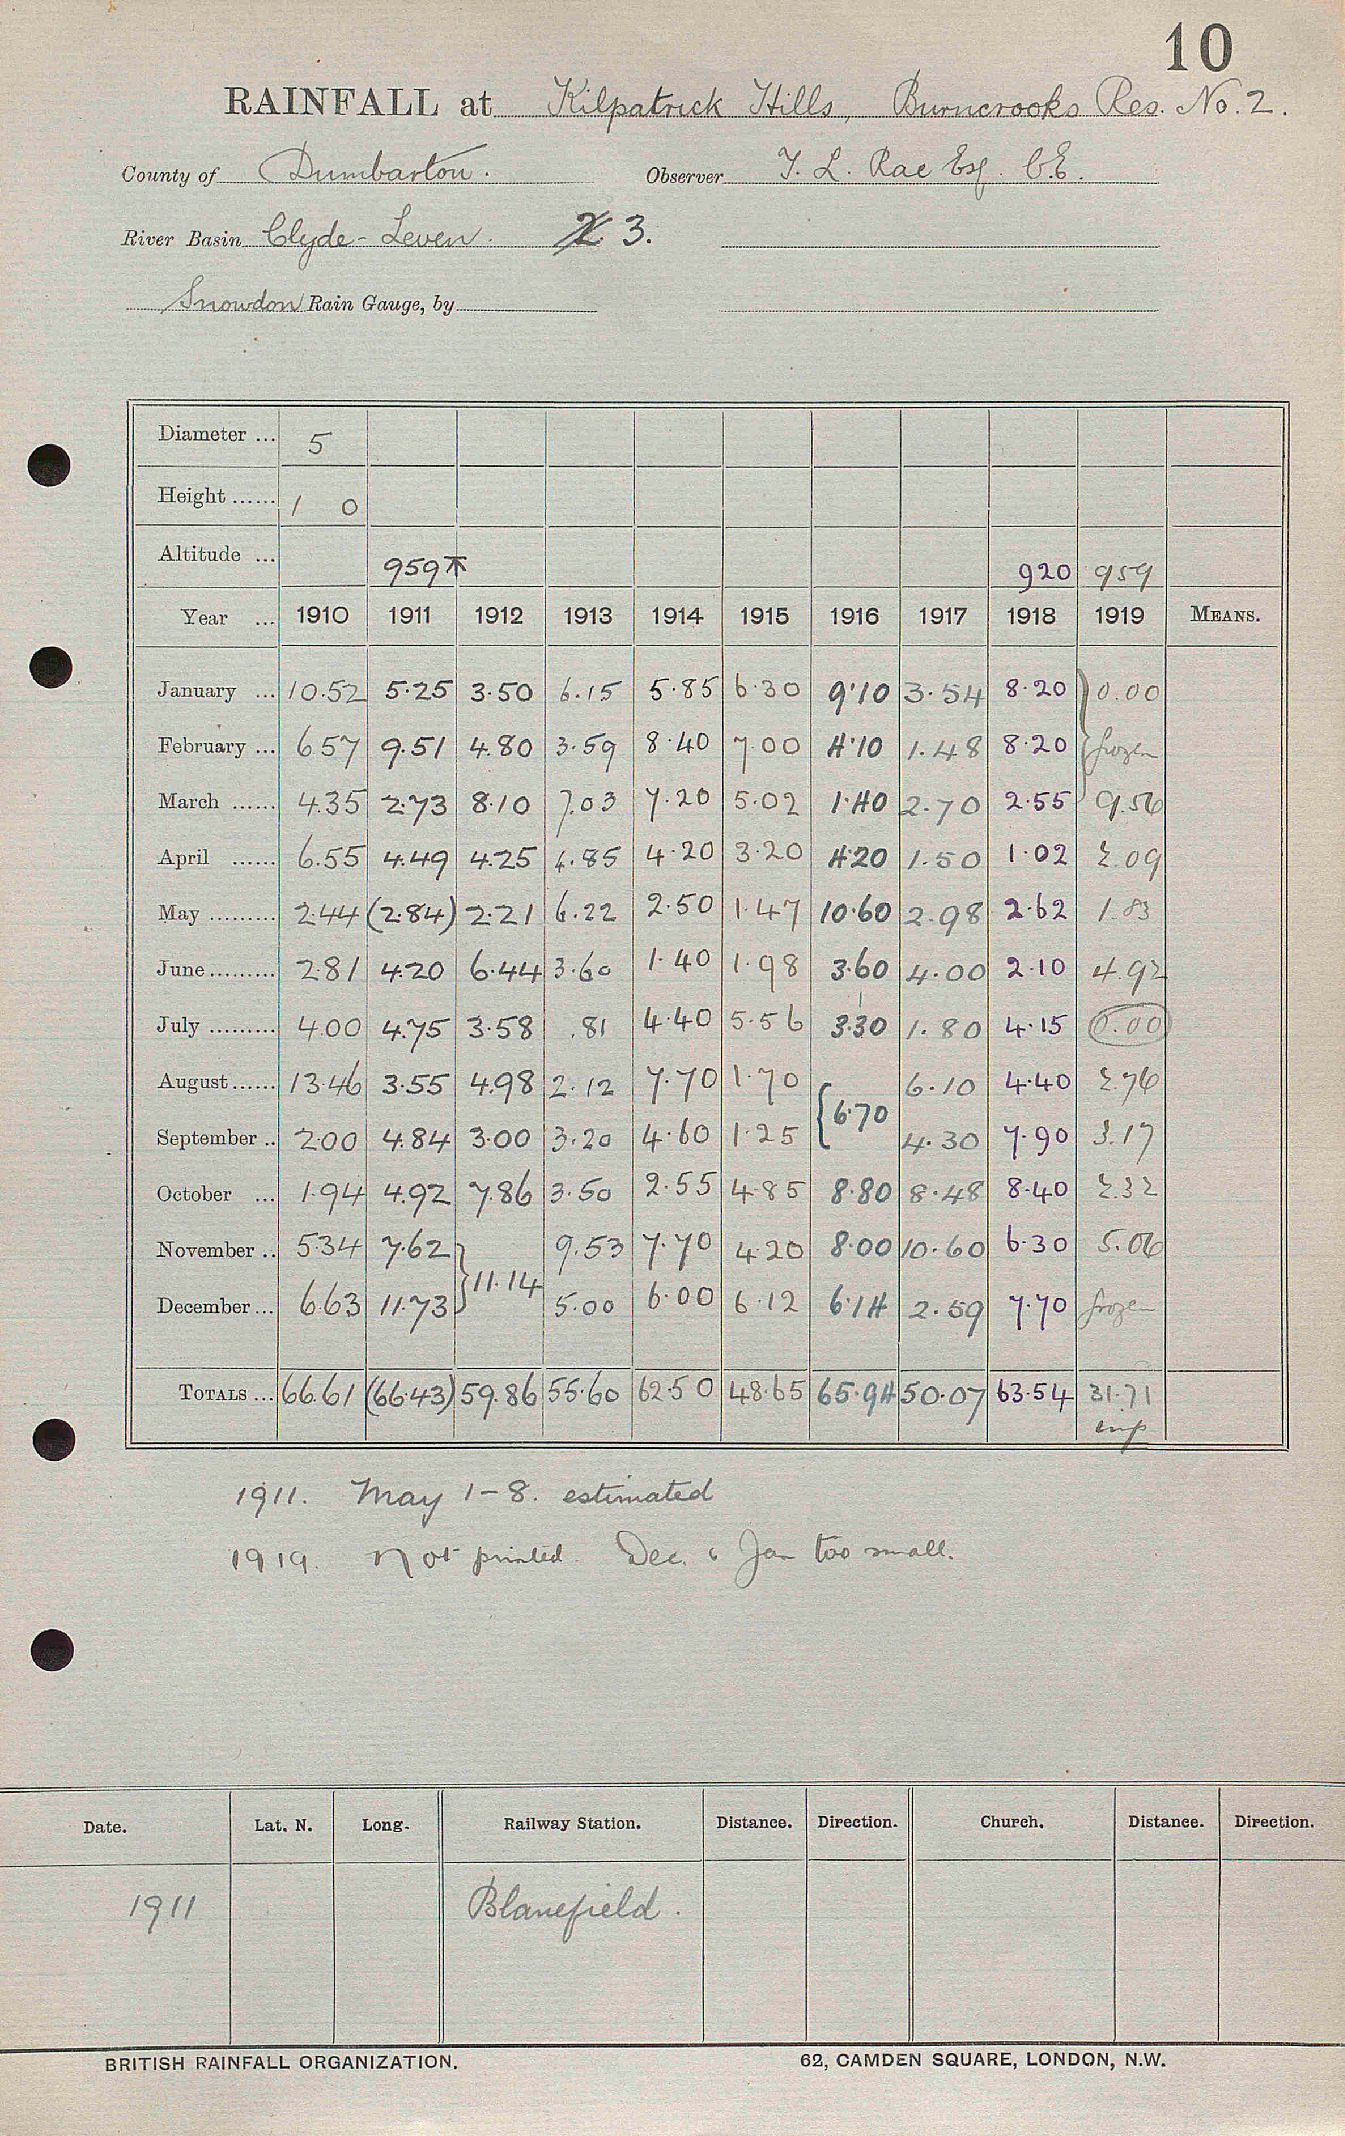 10
RAINFALL at Kilpatrick Hills, Burncrooks Res. No. 2.
County of Dumbarton. Observer T. L. Rae Esq. C.E.
River Basin Clyde - Leven. 3.
Snowdon Rain Gauge, by
Diameter ... 5
Height ...... 1 0
Altitude ... 959 920 959
Year ... 1910 1911 1912 1913 1914 1915 1916 1917 1918 1919 MEANS.
January ... 10.52 5.25 3.50 6.15 5.85 6.30 9.10 3.54 8.20 0.00
February ... 6.57 9.51 4.80 3.59 8.40 7.00 4.10 1.48 8.20 frozen
March ...... 4.35 2.73 8.10 7.03 7.20 5.02 1.40 2.70 2.55 9.56
April ...... 6.55 4.49 4.25 4.85 4.20 3.20 4.20 1.50 1.02 2.09
May ......... 2.44 (2.84) 2.21 6.22 2.50 1.47 10.60 2.98 2.62 1.83
June ......... 2.81 4.20 6.44 3.60 1.40 1.98 3.60 4.00 2.10 4.92
July ......... 4.00 4.75 3.58 .81 4.40 5.56 3.30 1.80 4.15 0.00
August ...... 13.46 3.55 4.98 2.12 7.70 1.70 6.10 4.40 2.76
{6.70
September .. 2.00 4.84 3.00 3.20 4.60 1.25 4.30 7.90 3.17
October ... 1.94 4.92 7.86 3.50 2.55 4.85 8.80 8.48 8.40 2.32
November .. 5.34 7.62 9.53 7.70 4.20 8.00 10.60 6.30 5.06
}11.14
December ... 6.63 11.73 5.00 6.00 6.12 6.14 2.59 7.70 frozen
TOTALS ... 66.61 (66.43) 59.86 55.60 62.50 48.65 65.94 50.07 63.54 31.71
imp
1911. May 1-8. estimated
1919. Not printed. Dec. & Jan too small.
Date. Lat. N. Long. Railway Station. Distance. Direction. Church. Distance. Direction.
1911 Blanefield.
BRITISH RAINFALL ORGANIZATION. 62, CAMDEN SQUARE, LONDON, N.W.